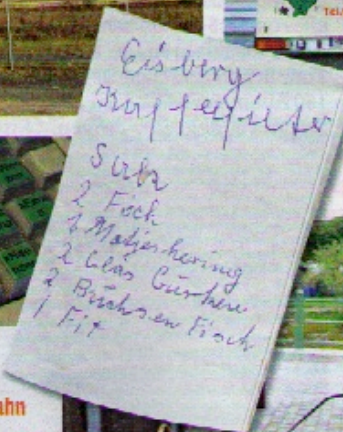 Eisberg
Kaffeefilter
Salz
2 Fisch
1 Matjeshering
2 Glas Gurken
2 Büchsen Fisch
1 Fit
ahn